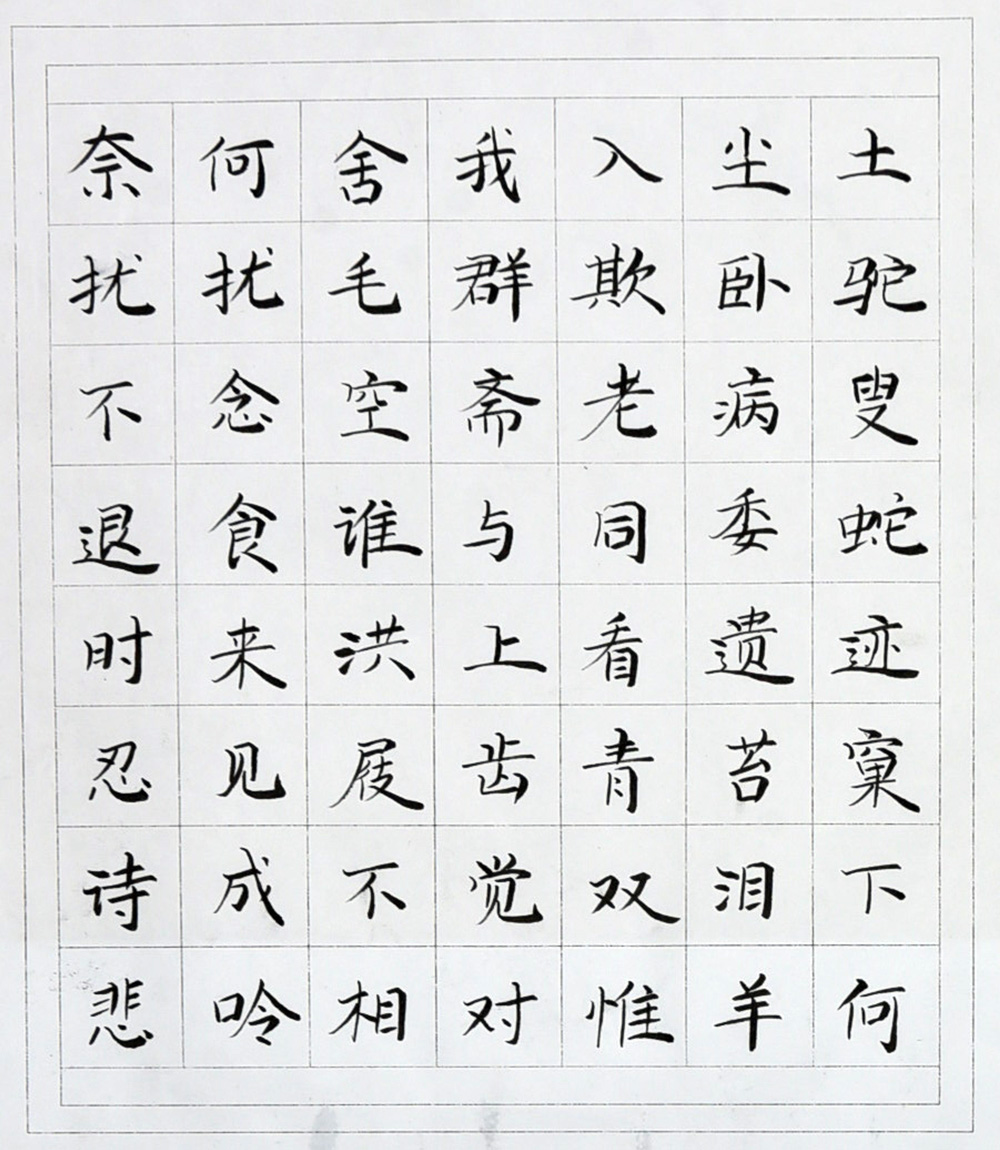 奈何舍我入尘土
扰扰毛群欺卧驼
不念空斋老病叟
退食谁与同委蛇
时来洪上看遗迹
忍见屐齿青苔窠
诗成不觉双泪下
悲呤相对惟羊何